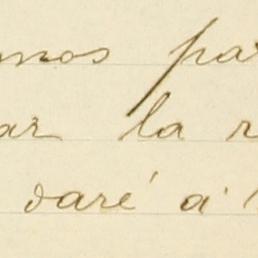 mos pa
ar la r
daré á